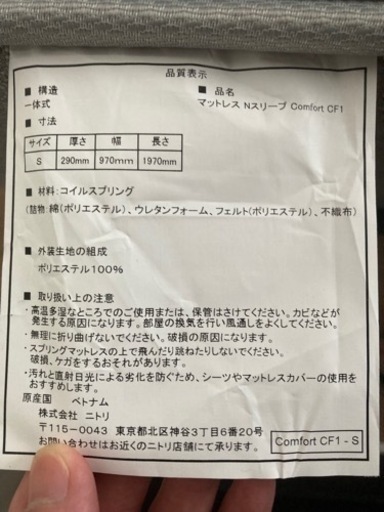 品質表示
■ 構造
一体式
■ 品名
マットレス Nスリープ Comfort CF1
■ 寸法
サイズ 厚さ 幅 長さ
S 290mm 970mm 1970mm
■ 材料:コイルスプリング
(詰物:綿(ポリエステル)、ウレタンフォーム、フェルト(ポリエステル)、不織布)
■ 外装生地の組成
ポリエステル100%
■ 取り扱い上の注意
・高温多湿なところでのご使用または、保管はさけてください。カビなどが
発生する原因になります。部屋の換気を行い風通しをよくしてください。
・無理に折り曲げないでください。破損の原因になります。
・スプリングマットレスの上で飛んだり跳ねたりしないでください。
破損、ケガをするおそれがあります。
・汚れと直射日光による劣化を防ぐため、シーツやマットレスカバーの使用を
おすすめします。
原産国 ベトナム
株式会社 ニトリ
〒115-0043 東京都北区神谷3丁目6番20号
お問い合わせはお近くのニトリ店舗にて承ります。
Comfort CF1 - S